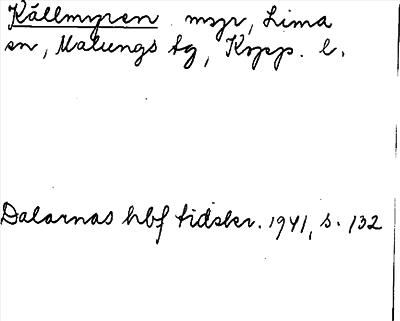 Källmyren myr, Lima
sn, Malungs tg, Kopp. l.
Dalarnas hbf tidskr. 1941, s. 132